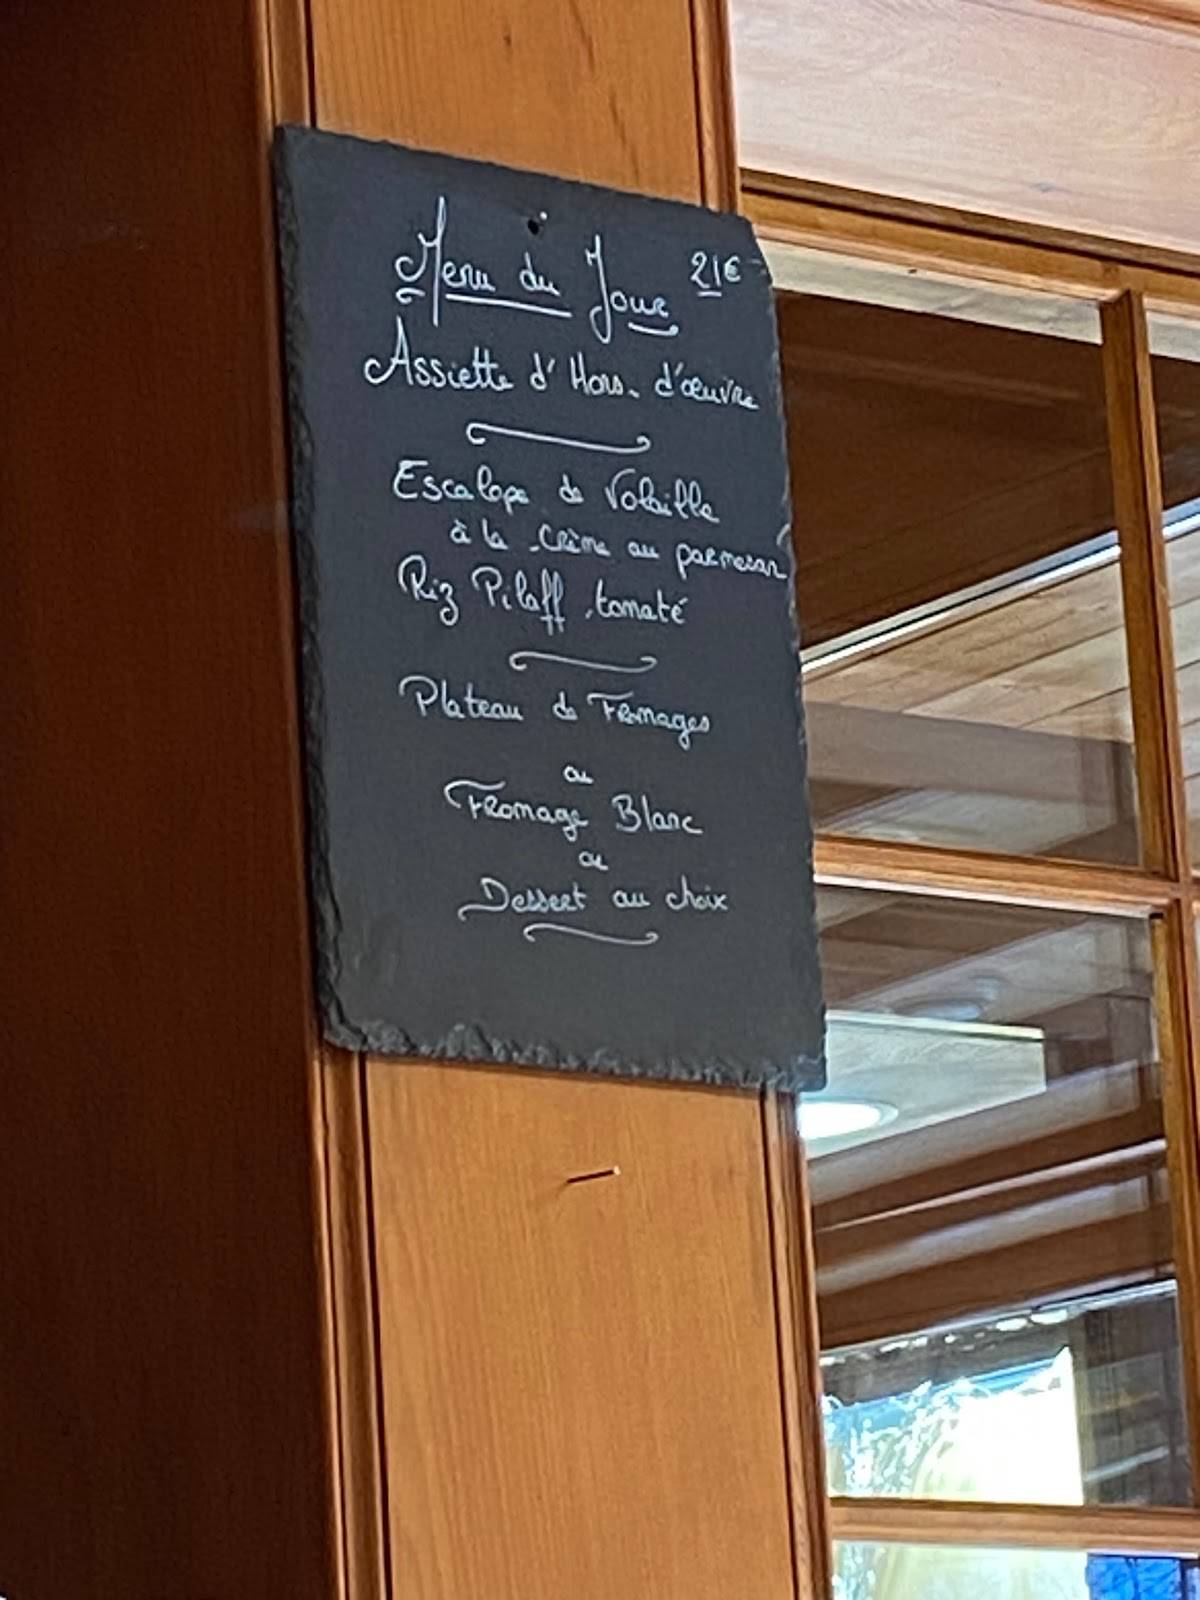 Menu du Jour 21€
Assiette d'Hors-d'œuvre
Escalope de Volaille
à la Crème au parmesan
Riz Pilaff tomaté
Plateau de Fromages
ou
Fromage Blanc
ou
Dessert au choix